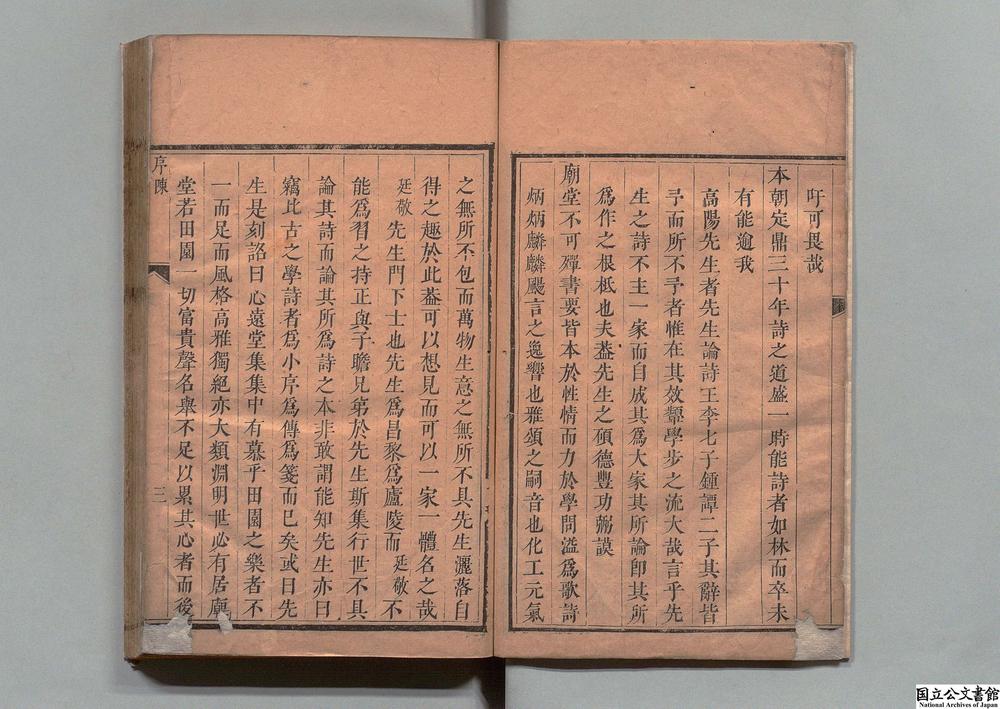 吁可畏哉
本朝定鼎三十年詩之道盛一時能詩者如林而卒未
有能逾我
高陽先生者先生論詩王李七子鍾譚二子其辭皆
予而所不予者惟在其效顰學步之流大哉言乎先
生之詩不主一家而自成其爲大家其所論卽其所
爲作之根柢也夫葢先生之碩德豐功藎謨
廟堂不可殫書要皆本於性情而力於學問溢爲歌詩
炳炳麟麟颺言之逸響也雅頌之嗣音也化工元氣
之無所不包而萬物生意之無所不具先生灑落自
得之趣於此葢可以想見而可以一家一體名之哉
廷敬先生門下士也先生爲昌黎爲廬陵而廷敬不
能爲習之持正與子瞻兄弟於先生斯集行世不具
論其詩而論其所爲詩之本非敢謂能知先生亦曰
竊比古之學詩者爲小序爲傳爲箋而已矣或曰先
生是刻諮曰心遠堂集集中有慕乎田園之樂者不
一而足而風格高雅獨絕亦大類淵明世必有居廟
堂若田園一切富貴聲名舉不足以累其心者而後
序陳
三
国立公文書館
National Archives of Japan